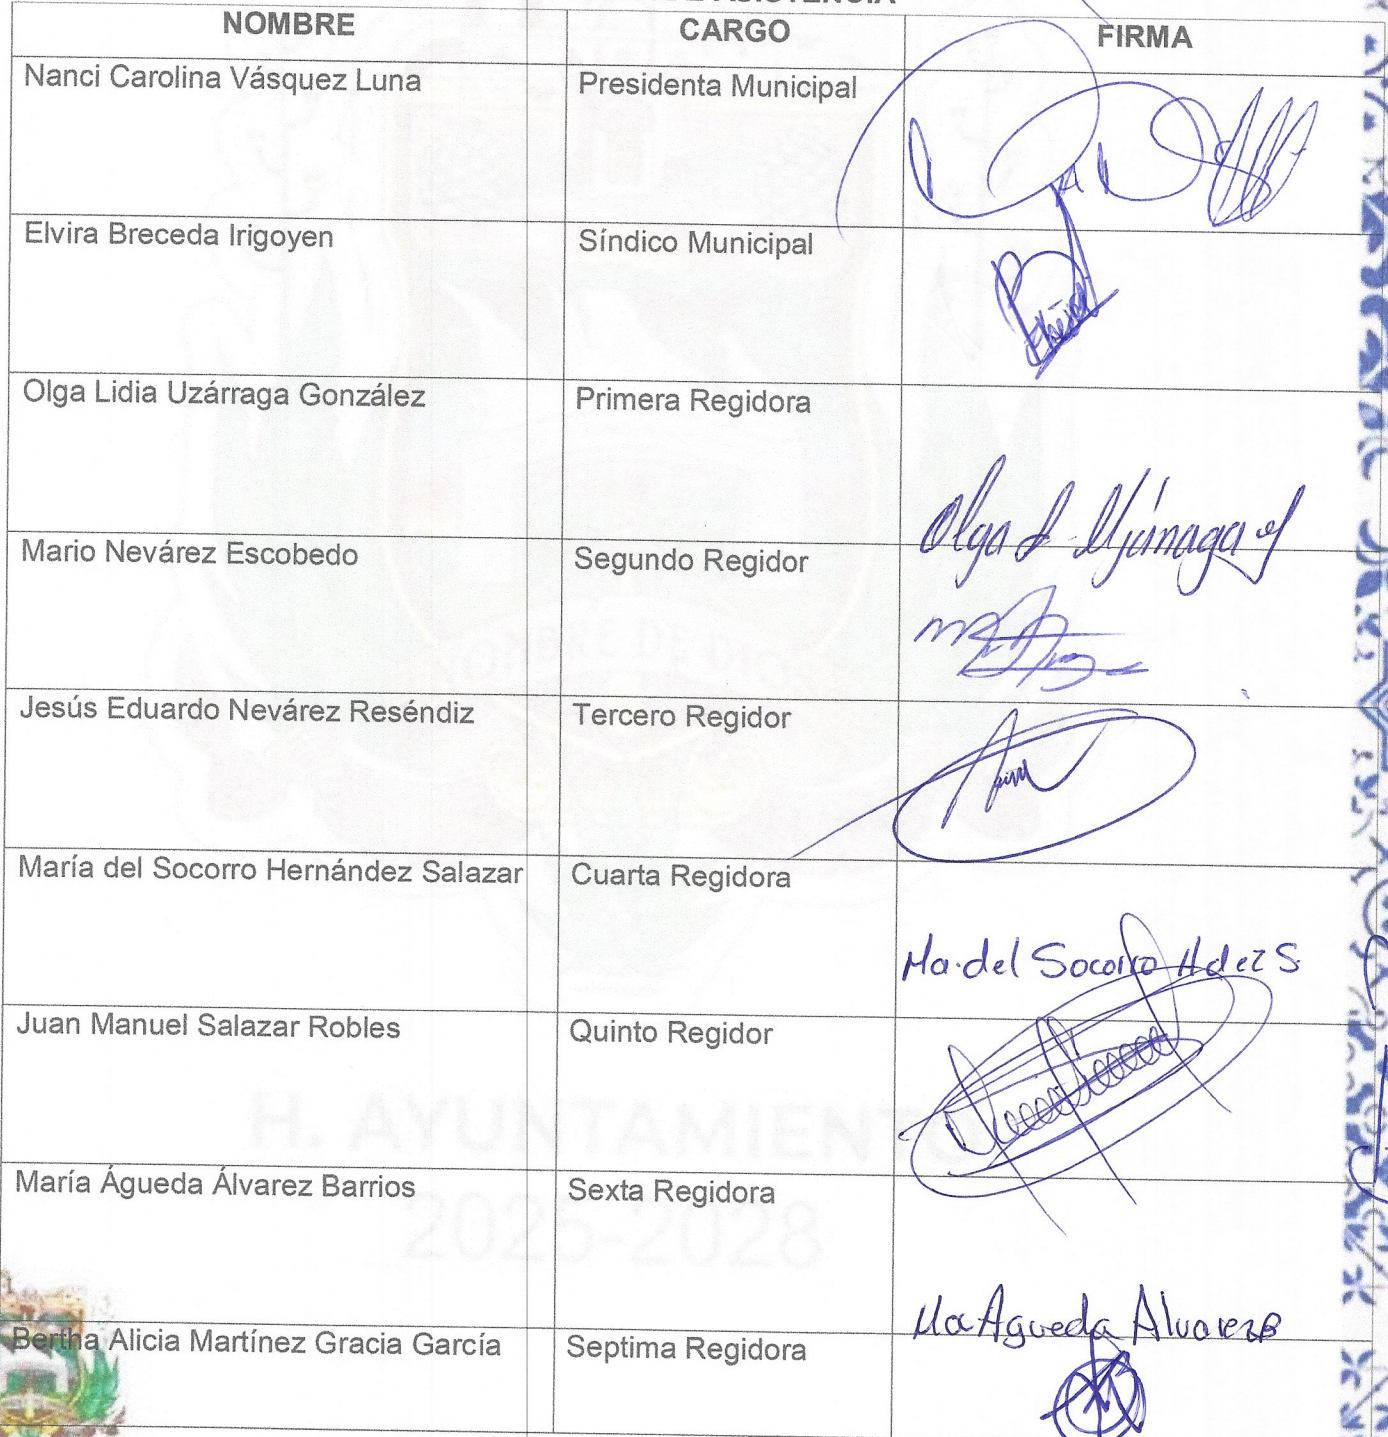 DE ASISTENCIA
NOMBRE CARGO FIRMA
Nanci Carolina Vásquez Luna Presidenta Municipal
Elvira Breceda Irigoyen Síndico Municipal
Olga Lidia Uzárraga González Primera Regidora
Olga L.
Mario Nevárez Escobedo Segundo Regidor
Jesús Eduardo Nevárez Reséndiz Tercero Regidor
María del Socorro Hernández Salazar Cuarta Regidora
Ma. del Socorro Hdez S
Juan Manuel Salazar Robles Quinto Regidor
H. AYUNTAMIENTO
María Águeda Álvarez Barrios Sexta Regidora
2025-2028
Ma Agueda Alvarez B
Bertha Alicia Martínez Gracia García Septima Regidora